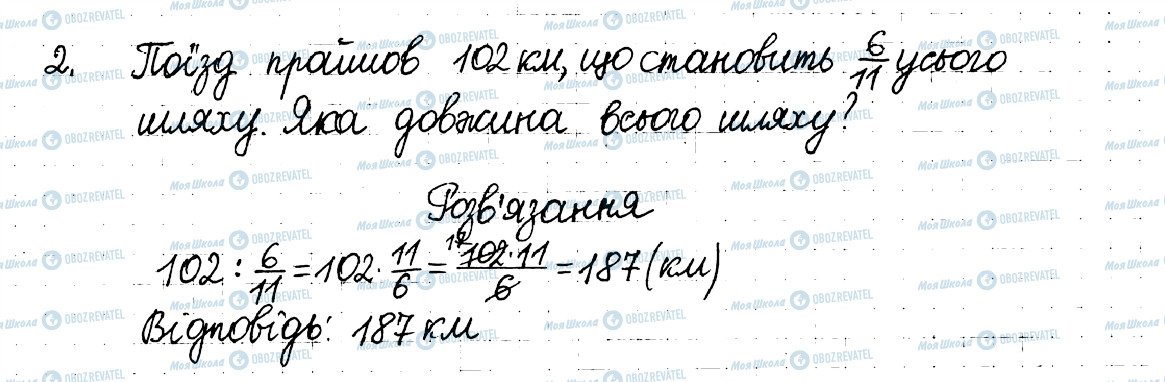 2. Поїзд пройшов 102 км, що становить 6/11 усього
шляху. Яка довжина всього шляху?
Розв'язання
102 : 6/11 = 102 · 11/6 = 17 102·11/6 = 187 (км)
Відповідь: 187 км